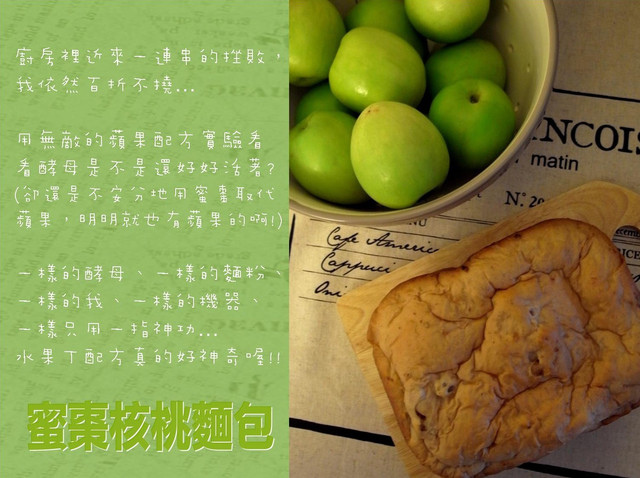 廚房裡近來一連串的挫敗，
我依然百折不撓...
用無敵的蘋果配方實驗看
看酵母是不是還好好活著?
(卻還是不安分地用蜜棗取代
蘋果，明明就也有蘋果的啊!)
一樣的酵母、一樣的麵粉、
一樣的我、一樣的機器、
一樣只用一指神功...
水果丁配方真的好神奇喔!!
蜜棗核桃麵包
NCOIS
matin
N°. 20
NU
Cafe Americ
Cappucci
Oni
RICE